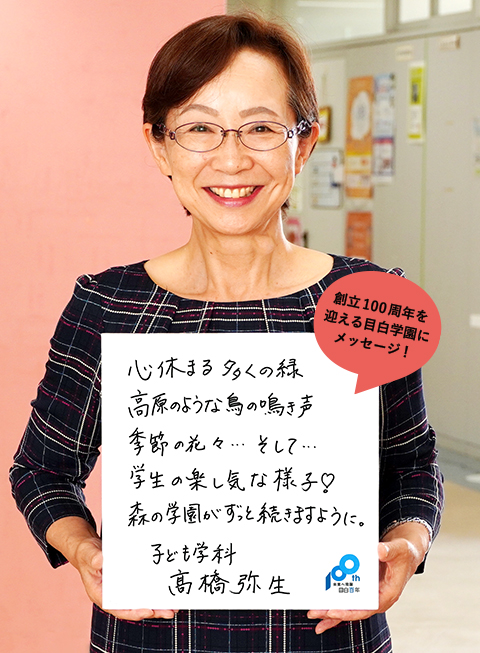 創立100周年を
迎える目白学園に
メッセージ！
心休まる多くの緑
高原のような鳥の鳴き声
季節の花々…そして…
学生の楽し気な様子♡
森の学園がずっと続きますように。
子ども学科
髙橋弥生
100th
未来へ飛翔
目白百年